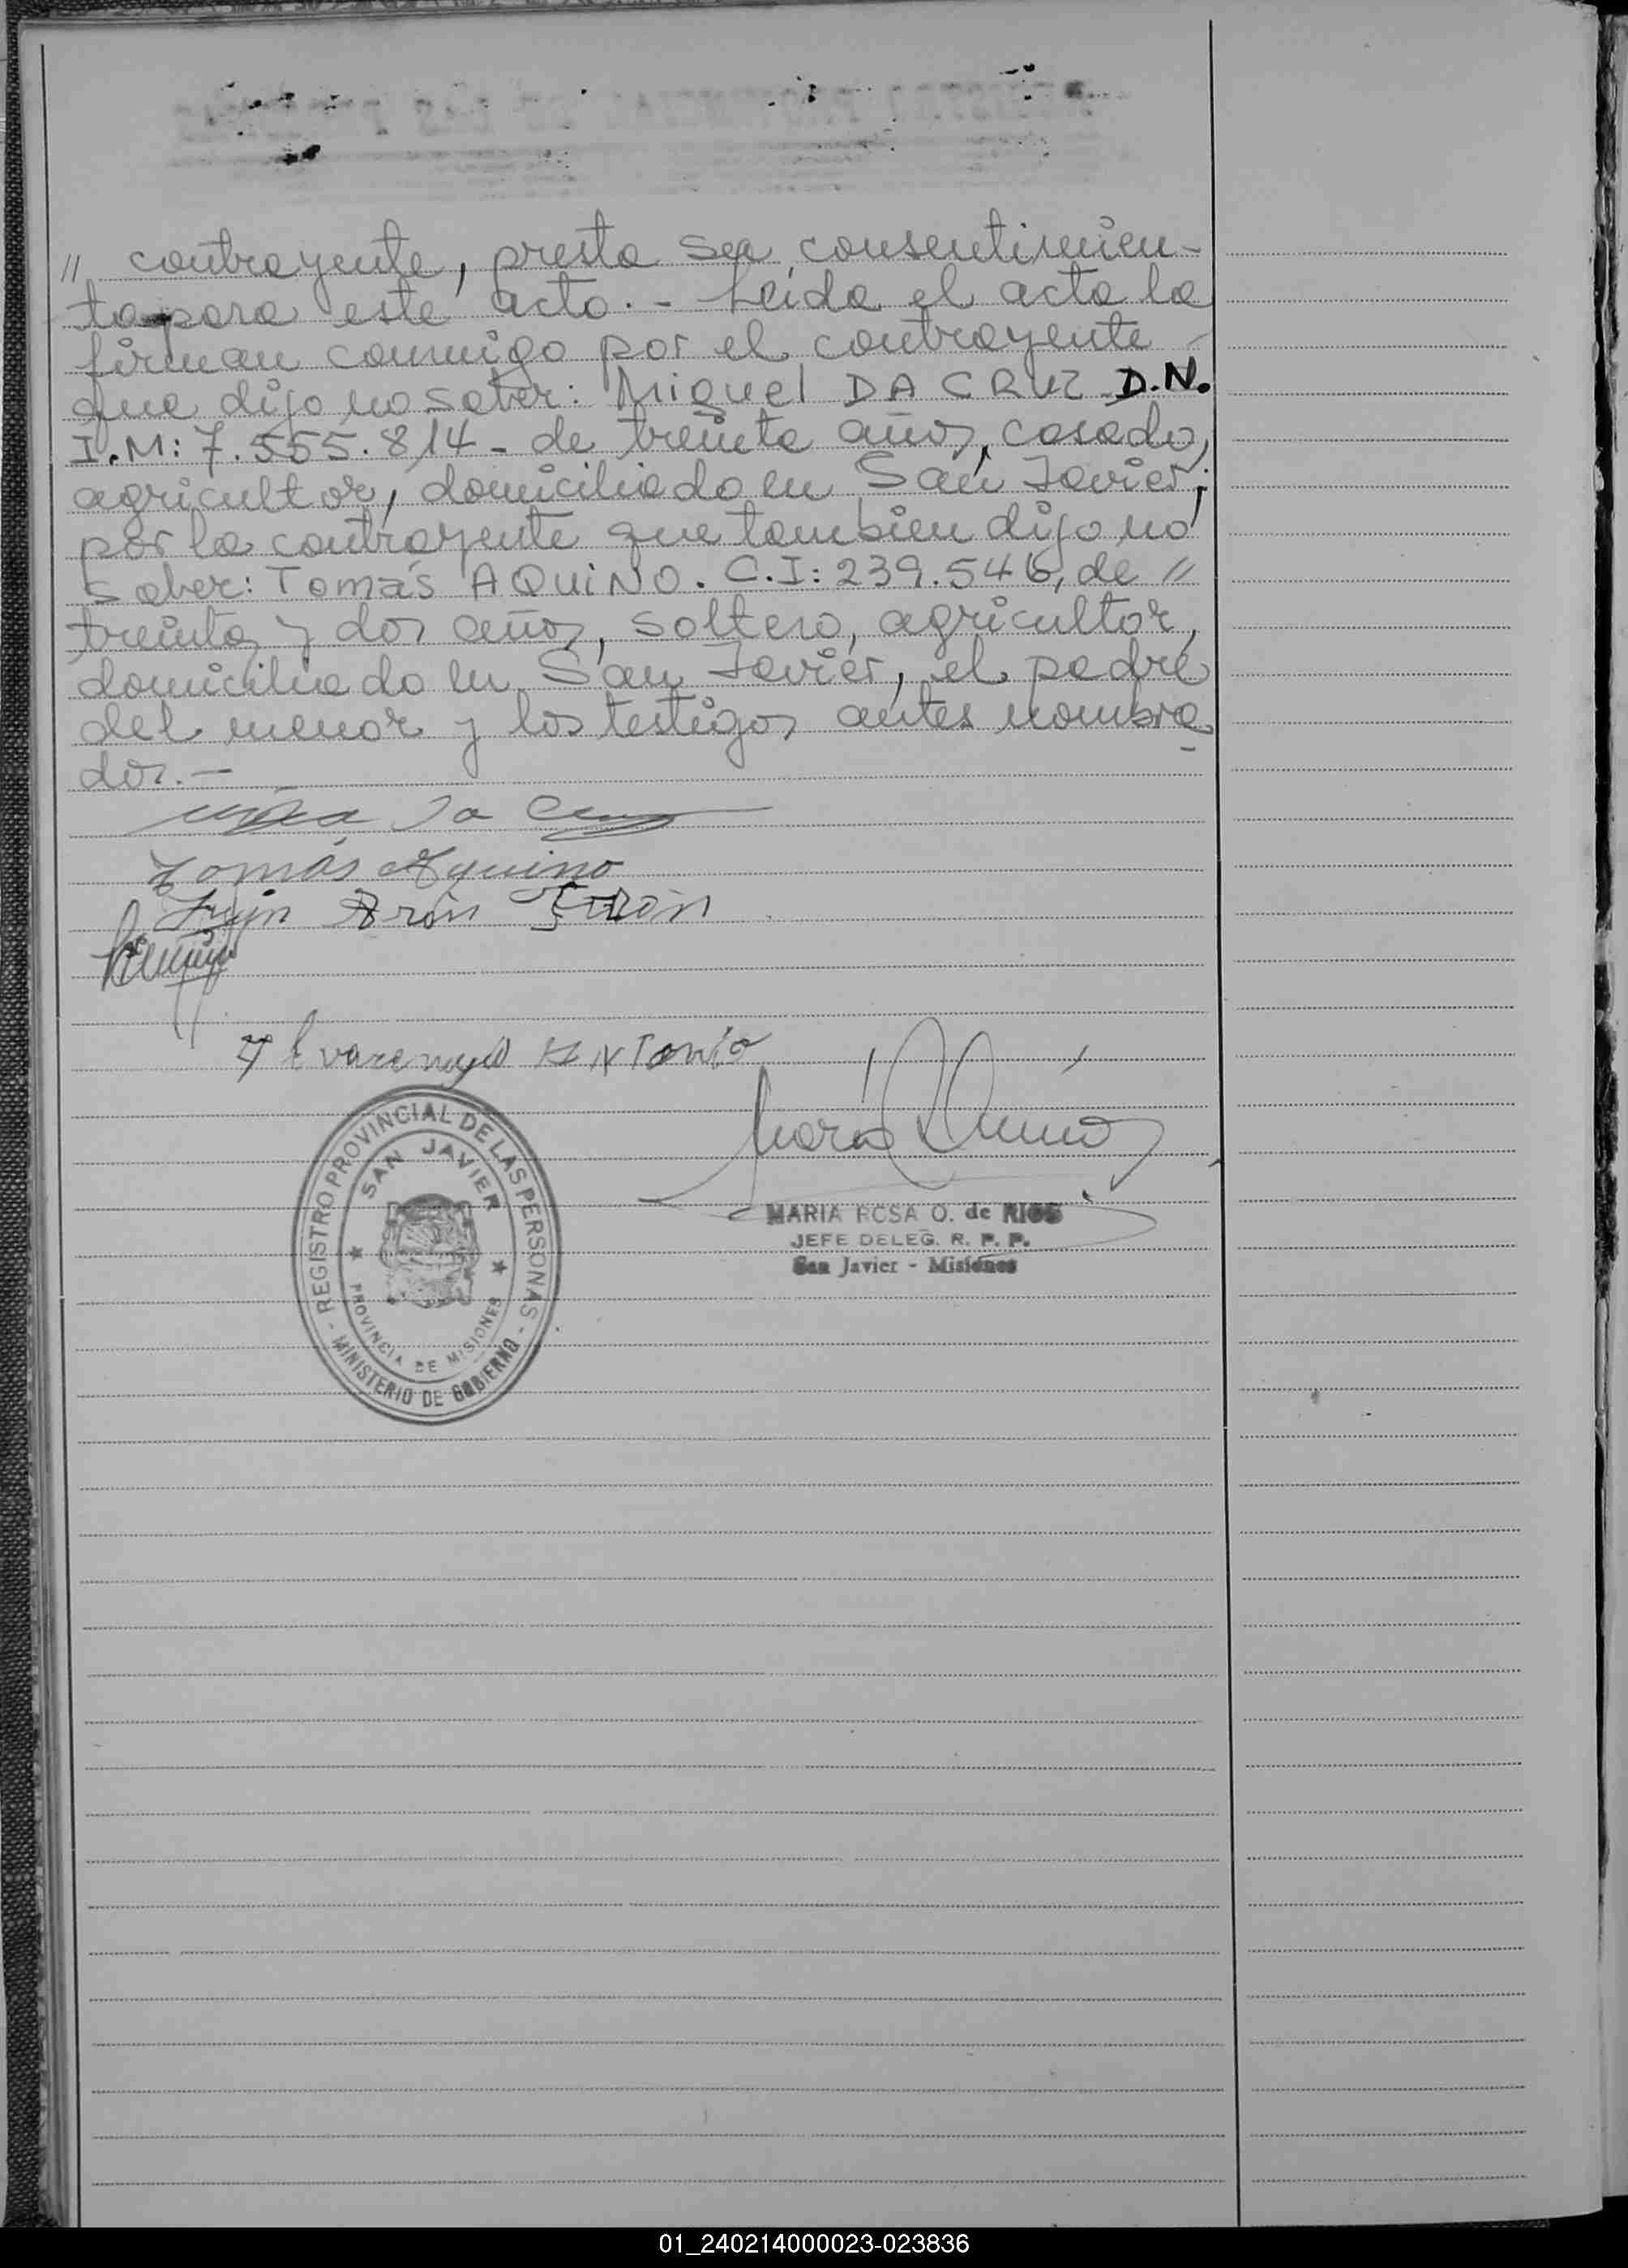 // contrayente, presta su consentimien-
to para este acto.- Leída el acta la
firman conmigo por el contrayente -
que dijo no saber: Miguel DA CRUZ D.N.
I.M: 7.555.814 - de treinta años, casado,
agricultor, domiciliado en San Javier;
por la contrayente que tambien dijo no
saber: Tomás AQUINO. C.I: 239.546, de //
treinta y dos años, soltero, agricultor,
domiciliado en San Javier, el padre
del menor y los testigos antes nombra-
dos.-
da Cruz
Tomás Aquino
María
REGISTRO PROVINCIAL DE LAS PERSONAS - MINISTERIO DE GOBIERNO -
SAN JAVIER
PROVINCIA DE MISIONES
MARIA ROSA O. de RIOS
JEFE DELEG. R. P. P.
San Javier - Misiones
01_240214000023-023836